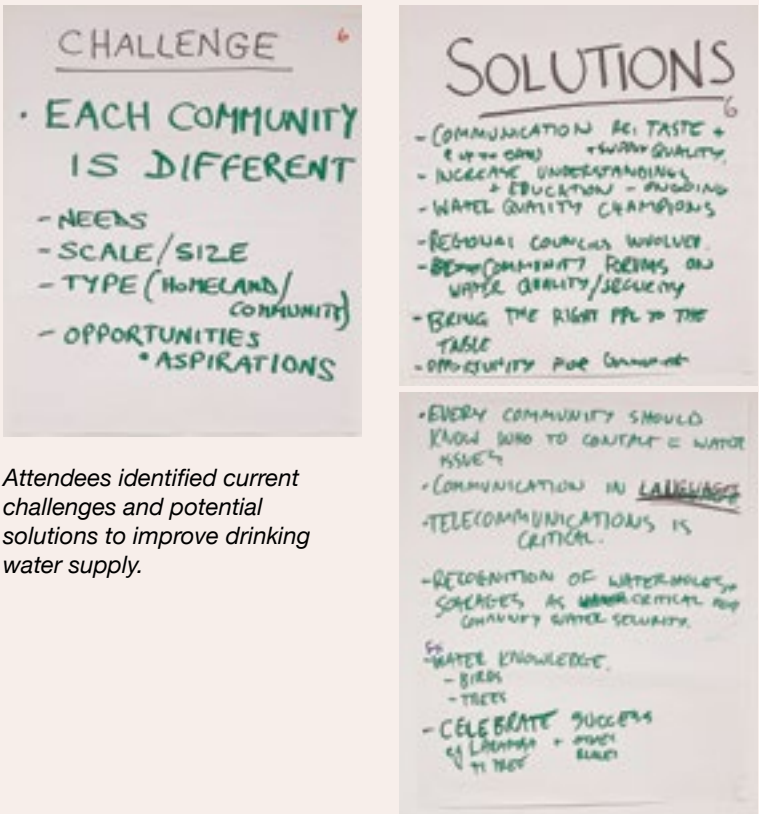 CHALLENGE
6
· EACH COMMUNITY
IS DIFFERENT
- NEEDS
- SCALE/SIZE
- TYPE (HOMELAND/
COMMUNITY)
- OPPORTUNITIES
• ASPIRATIONS
Attendees identified current
challenges and potential
solutions to improve drinking
water supply.
SOLUTIONS
6
- COMMUNICATION RE: TASTE +
(UP TO DATE) + SUPPLY QUALITY
- INCREASE UNDERSTANDINGS
+ EDUCATION - ONGOING
- WATER QUALITY CHAMPIONS
- REGIONAL COUNCILS INVOLVED.
- COMMUNITY FORUMS ON
WATER QUALITY/SECURITY
- BRING THE RIGHT PPL TO THE
TABLE
- OPPORTUNITY FOR
• EVERY COMMUNITY SHOULD
KNOW WHO TO CONTACT WATER
ISSUES
- COMMUNICATION IN LANGUAGE
- TELECOMMUNICATIONS IS
CRITICAL.
- RECOGNITION OF WATERHOLES +
SOAKAGES AS CRITICAL FOR
COMMUNITY WATER SECURITY.
- WATER KNOWLEDGE.
- BIRDS
- TREES
- CELEBRATE SUCCESS
eg +
TI TREE